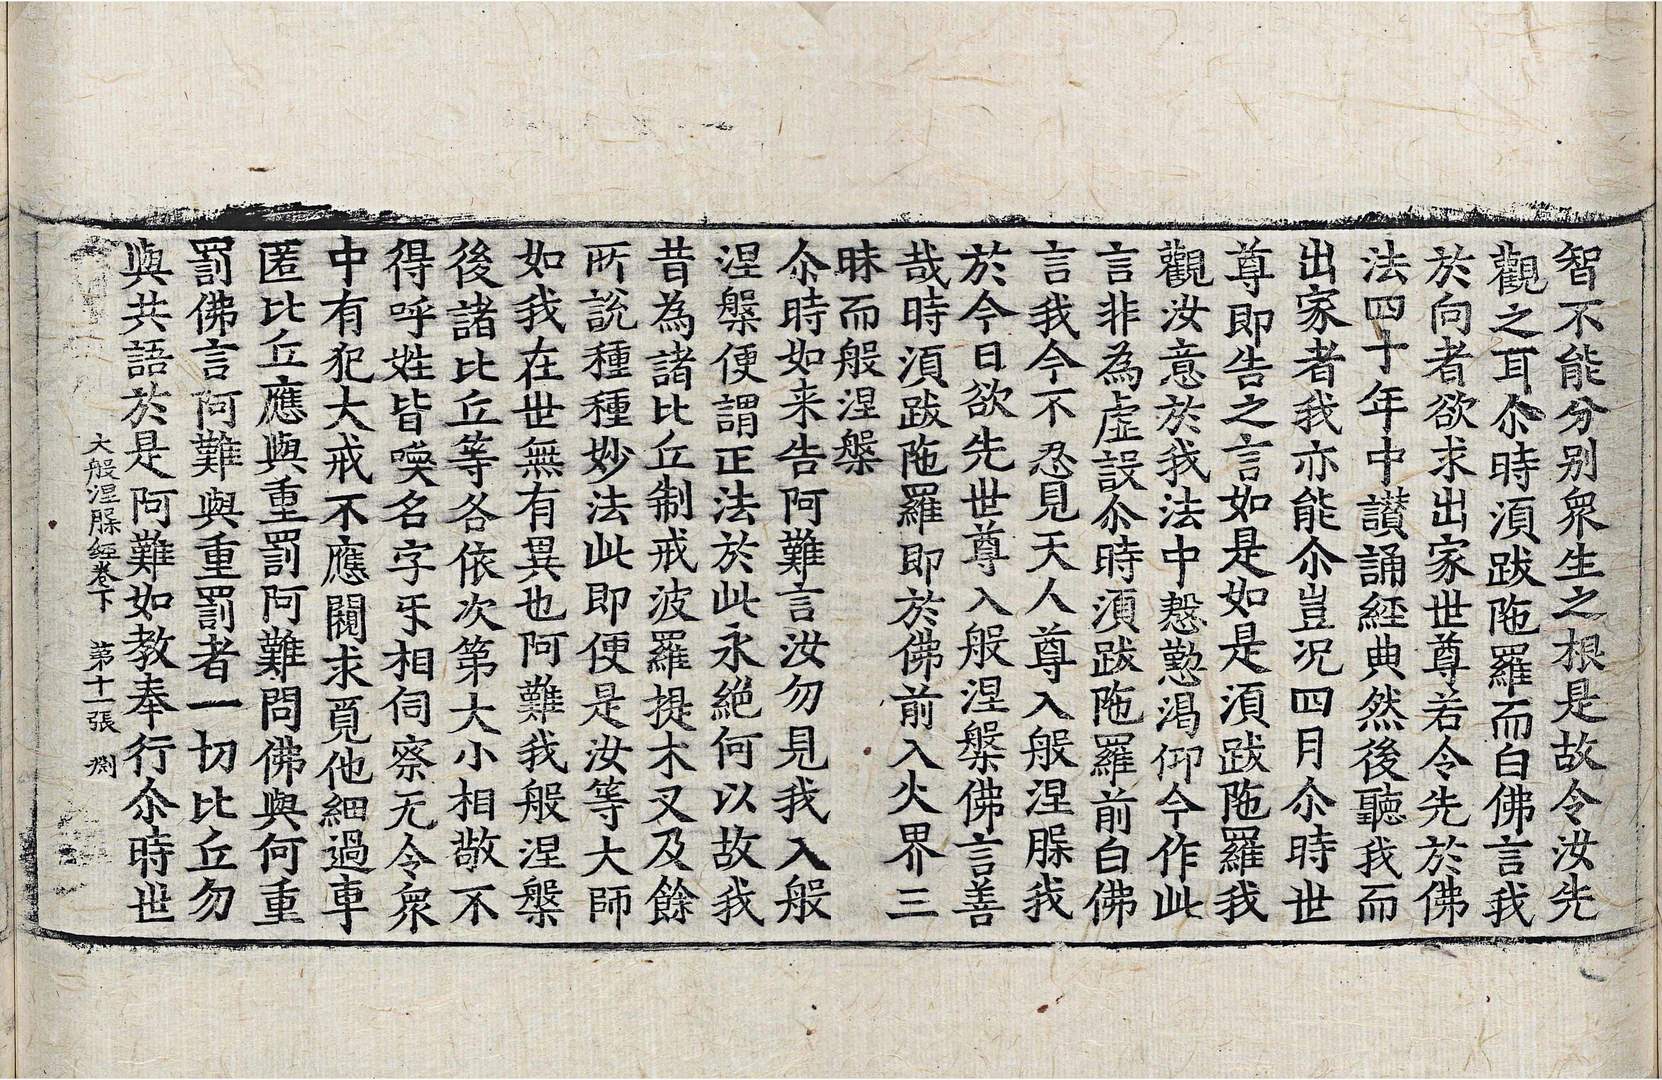 智不能分別衆生之根是故令汝先
觀之耳尒時湏跋陁羅而白佛言我
於向者欲求出家世尊若令先於佛
法四十年中讃誦經典然後聽我而
出家者我亦能尒豈况四月尒時世
尊即告之言如是如是湏跋陁羅我
觀汝意於我法中慇懃渴仰今作此
言非為虛設尒時湏跋陁羅前白佛
言我今不忍見天人尊入般涅槃我
於今日欲先世尊入般涅槃佛言善
哉時湏跋陁羅即於佛前入火界三
昧而般涅槃
尒時如来告阿難言汝勿見我入般
涅槃便謂正法於此永絕何以故我
昔為諸比丘制戒波羅提木叉及餘
所說種種妙法此即便是汝等大師
如我在世無有異也阿難我般涅槃
後諸比丘等各依次第大小相敬不
得呼姓皆喚名字㸦相伺察无令衆
中有犯大戒不應闚求覓他細過車
匿比丘應與重罰阿難問佛與何重
罰佛言阿難與重罰者一切比丘勿
與共語於是阿難如教奉行尒時世
大般涅槃經卷下　第十二張